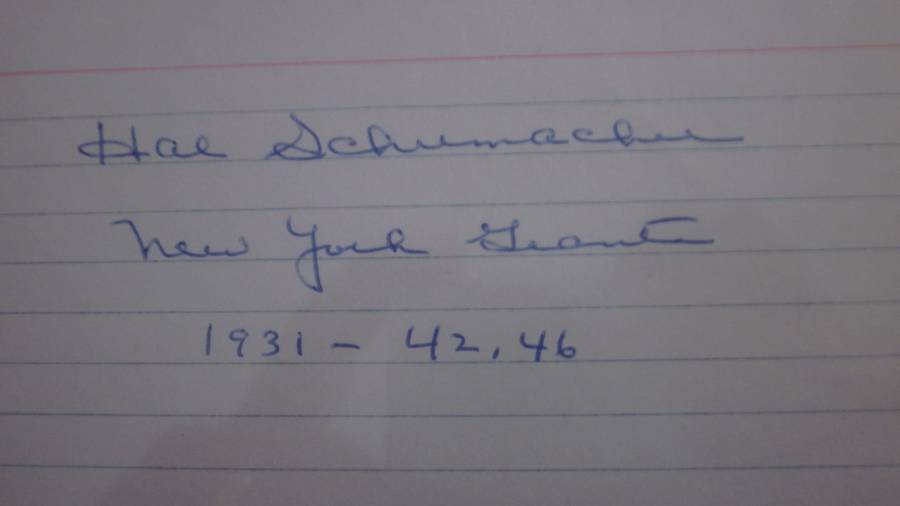 Hal Schumacher
New York Giants
1931 - 42, 46